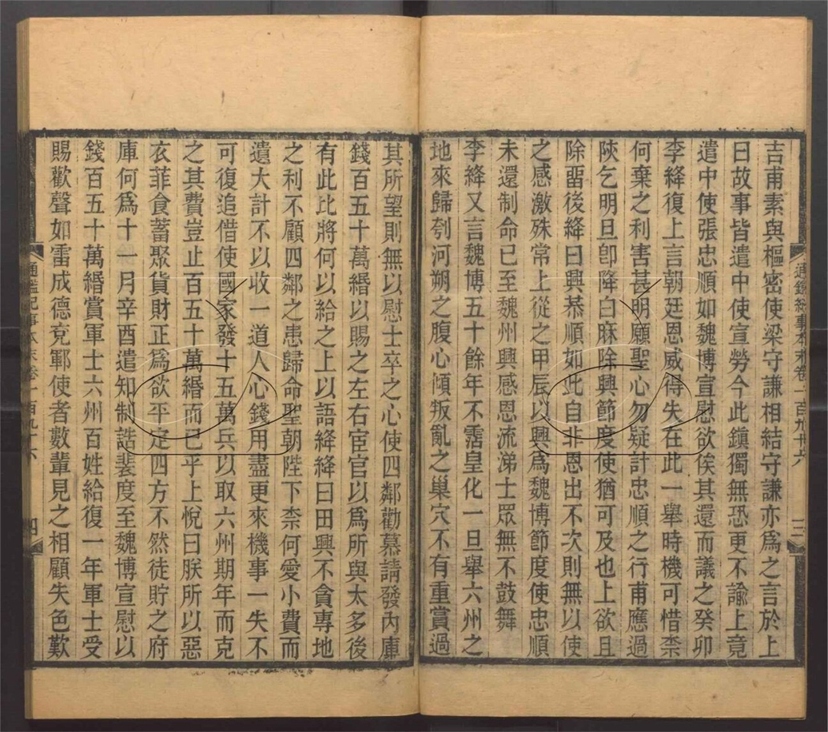 吉甫素與樞密使梁守謙相結守謙亦爲之言於上
曰故事皆遣中使宣勞今此鎭獨無恐更不諭上竟
遣中使張忠順如魏博宣慰欲俟其還而議之癸卯
李絳復上言朝廷恩威得失在此一舉時機可惜柰
何棄之利害甚明願聖心勿疑計忠順之行甫應過
陜乞明旦卽降白麻除興節度使猶可及也上欲且
除畱後絳曰興恭順如此自非恩出不次則無以使
之感激殊常上從之甲辰以興爲魏博節度使忠順
未還制命已至魏州興感恩流涕士眾無不鼓舞
李絳又言魏博五十餘年不霑皇化一旦舉六州之
地來歸刳河朔之腹心傾叛亂之巢穴不有重賞過
其所望則無以慰士卒之心使四鄰勸慕請發內庫
錢百五十萬緡以賜之左右宦官以爲所與太多後
有此比將何以給之上以語絳絳曰田興不貪專地
之利不顧四鄰之患歸命聖朝陛下柰何愛小費而
遺大計不以收一道人心錢用盡更來機事一失不
可復追借使國家發十五萬兵以取六州期年而克
之其費豈止百五十萬緡而已乎上悅曰朕所以惡
衣菲食蓄聚貨財正爲欲平定四方不然徒貯之府
庫何爲十一月辛酉遣知制誥裴度至魏博宣慰以
錢百五十萬緡賞軍士六州百姓給復一年軍士受
賜歡聲如雷成德兗鄆使者數輩見之相顧失色歎
通鑑紀事本末卷一百九十六
三
通鑑紀事本末卷一百九十六
四